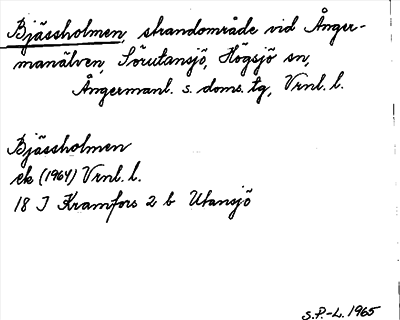 Bjässholmen, strandområde vid Ånger-
manälven, Sörutansjö, Högsjö sn,
Ångermanl. s. doms. tg, Vrnl. l.
Bjässholmen
ek (1964) Vrnl. l.
18 I Kramfors 2 b Utansjö
S.P.-L. 1965